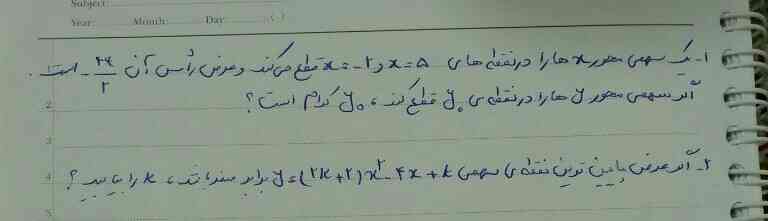 Subject:
Year: Month: Day: ( )
۱- یک سهمی محور xها را در نقطه های x=۵ و x=-۲ قطع می‌کند و عرض رأس آن -۲۴/۲ است.
اگر سهمی محور yها را در نقطه ی y₀ قطع کند، y₀ کدام است؟
۲- اگر عرض پایین ترین نقطه ی سهمی y=(۲k+۲)x²-۴x+k برابر صفر باشد، k را بیابید؟